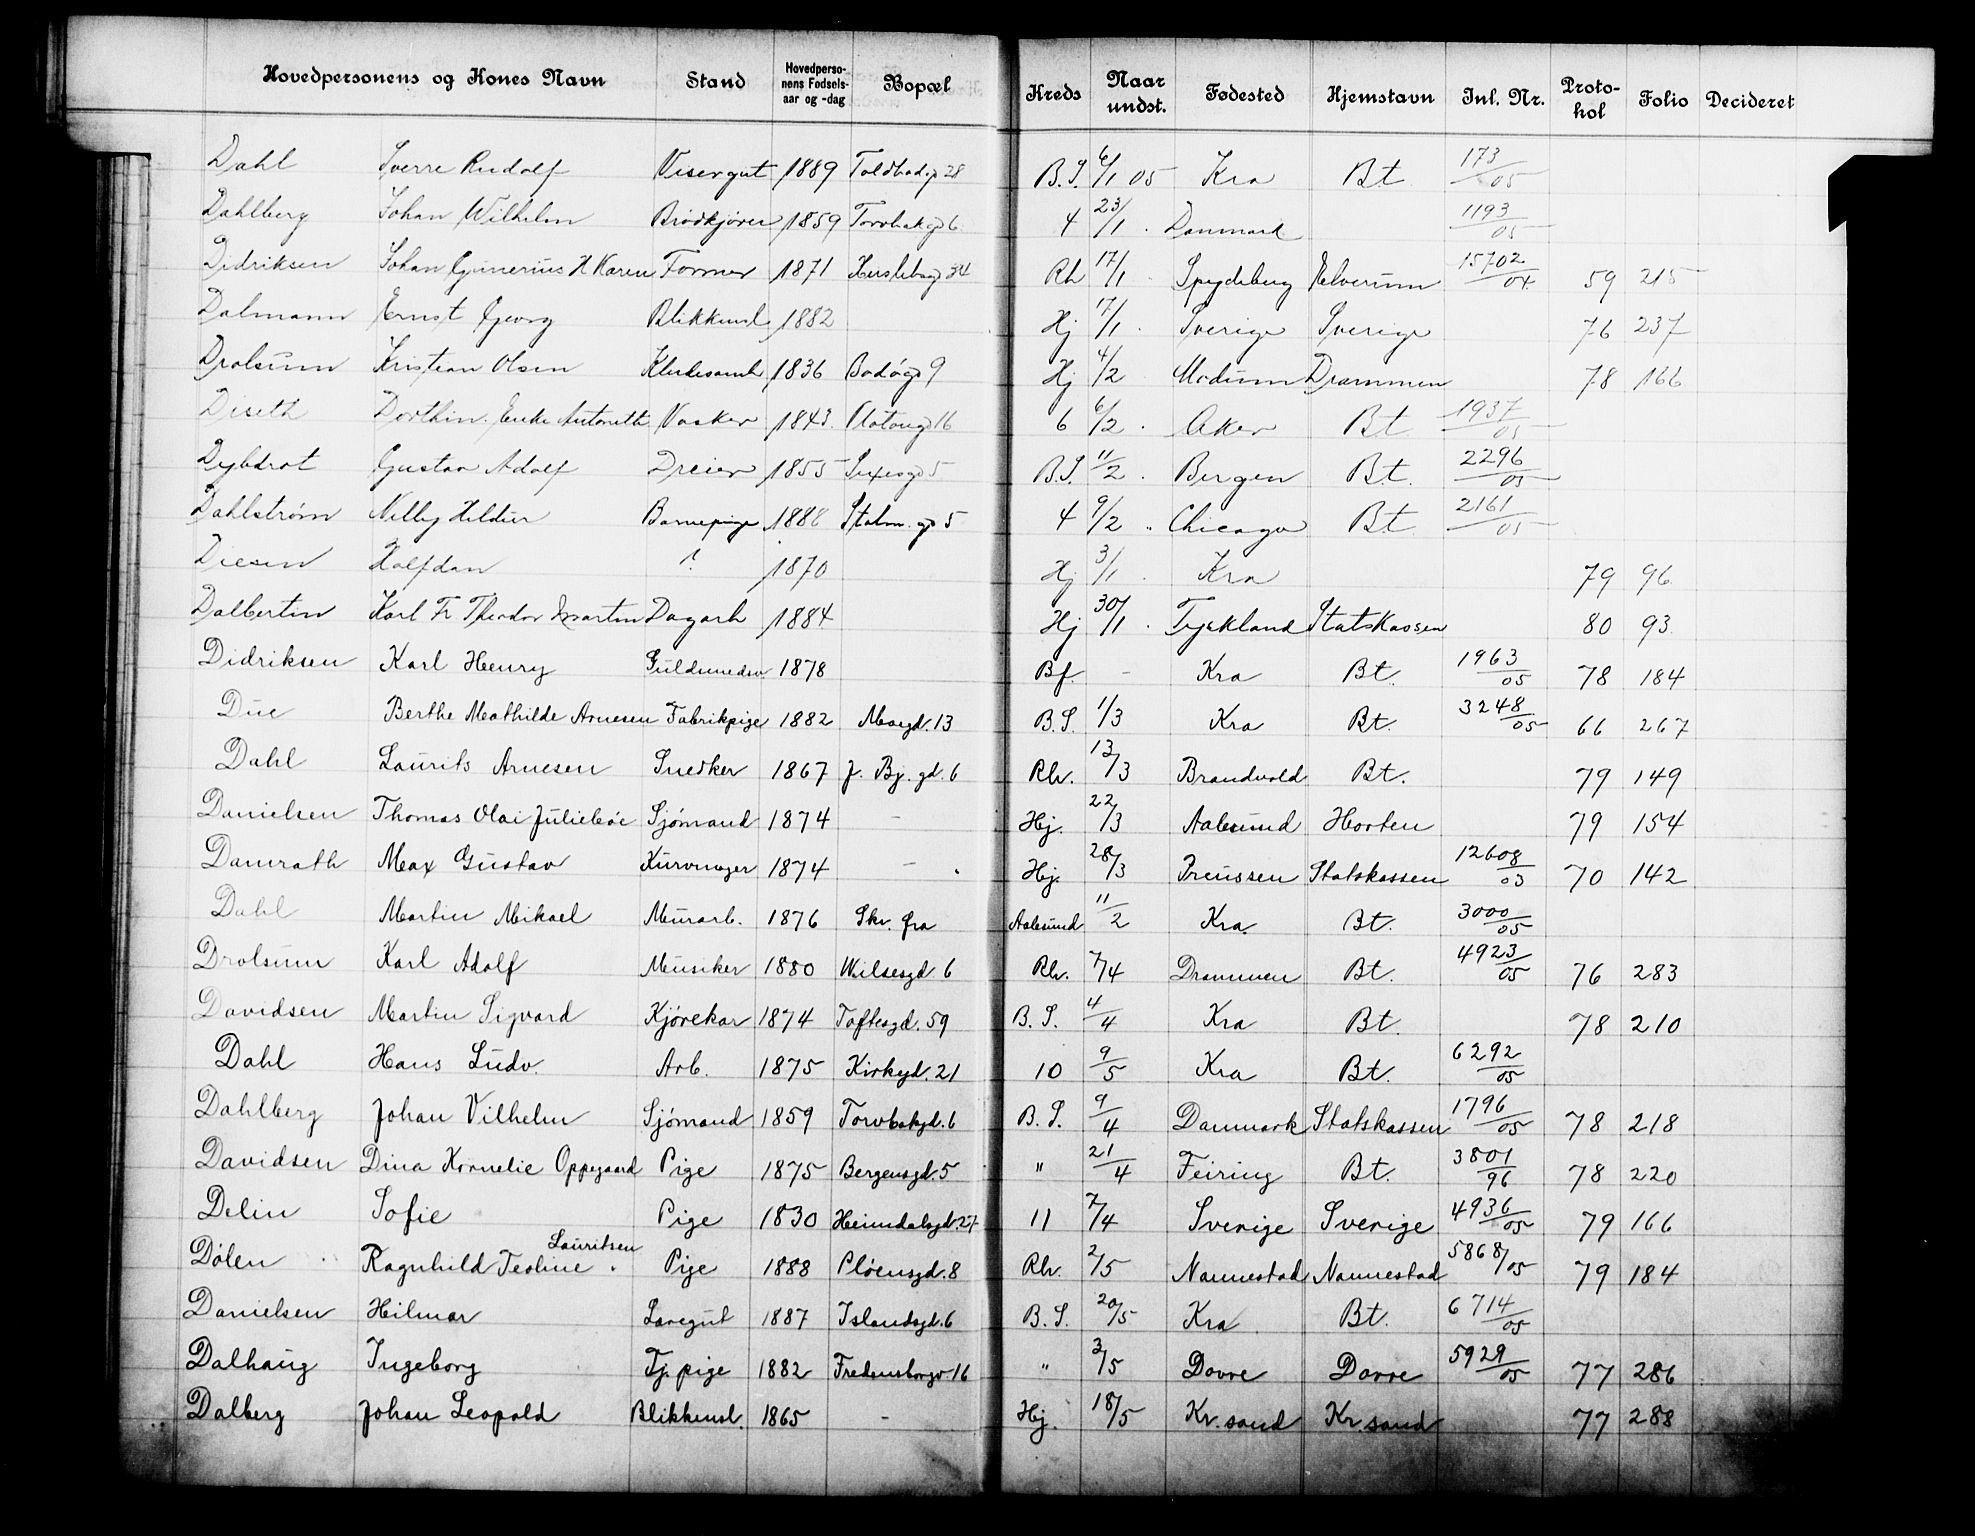 Hovedpersonens og Kones Navn Stand Hovedperso-nens Fødsels-aar og -dag Bopæl Kreds Naar undst. Fødested Hjemstavn Inl. Nr. Proto-kol Folio Decideret
Dahl Sverre Rudolf Visergut 1889 Toldbodg 28 B.S. 6/1 05 Kra Bt 173/05
Dahlberg Johan Wilhelm Brødkjører 1859 Torvbakgd 6 4 23/1 Danmark 1193/05
Didriksen Johan Gunerius H Karen Former 1871 Herslebsg 34 Rh 17/1 Spydeberg Elverum 15702/04 59 215
Dalmann Ernst Georg Blikkensl 1882 Hj 17/1 Sverige Sverige 76 237
Drolsum Kristian Olsen Kludesaml 1836 Bodøgd 9 Hj 4/2 Modum Drammen 78 166
Diseth Dorthin. Enke Antonette Vasker 1843 16 6 6/2 Aker Bt 1937/05
Dybdrot Gustav Adolf Dreier 1855 Sexesgd 5 B.S. 11/2 Bergen Bt. 2296/05
Dahlstrøm Nelly Hildur Barnepige 1888 Stolm. gd 5 4 9/2 " Chicago Bt 2161/05
Diesen Halfdan ? 1870 Hj 3/1 Kra 79 96
Dalbertin Karl Fr Theodor Martin Dagarb 1884 Hj 30/1 Tyskland Statskassen 80 93
Didriksen Karl Henry Guldsmedsv. 1878 Bf. - Kra Bt. 1963/05 78 184
Due Berthe Mathilde Arnesen Fabrikpige 1882 Maregd. 13 B.S. 1/3 Kra Bt. 3248/05 66 267
Dahl Laurits Arnesen Snedker 1867 J. Bj. gd. 6 Rh. 13/3 Brandvold Bt. 79 149
Danielsen Thomas Olai Juliebøe Sjømand 1874 - Hj. 22/3 Aalesund Horten 79 154
Damrath Max Gustav Kurvmager 1874 - Hj. 28/3 Preussen Statskassen 12608/03 70 142
Dahl Martin Mikael Murarb. 1876 Skr. fra Aalesund 11/2 Kra. Bt. 3000/05
Drolsum Karl Adolf Musiker 1880 Wilsesgd. 6 Rh. 7/4 Drammen Bt. 4923/05 76 283
Davidsen Martin Sigvard Kjørekar 1874 Toftesgd. 59 B. S. 4/4 Kra Bt. 78 210
Dahl Hans Ludv. Arb. 1875 Kirkgd. 21 10 9/5 Kra Bt. 6292/05
Dahlberg Johan Vilhelm Sjømand 1859 Torvbakgd. 6 B. S. 9/4 Danmark Statskassen 1796/05 78 218
Davidsen Dina Kornelie Oppegaard Pige 1875 Bergensgd. 5 " 21/4 Feiring Bt. 3801/96 78 220
Delin Sofie Pige 1830 Heimdalsgd. 27 11 7/4 Sverige Sverige 4936/05 79 166
Dølen Ragnhild Teoline Lauritsen Pige 1888 Pløensgd. 8 Rh. 2/5 Nannestad Nannestad 5868/05 79 184
Danielsen Hilmar Løregut 1887 Islandsgd. 6 B. S. 20/5 Kra Bt. 6714/05
Dalhaug Ingeborg Tj. pige 1882 Fredensborgv. 16 " 3/5 Dovre Dovre 5929/05 77 286
Dalberg Johan Leopold Blikkensl. 1865 - Hj. 18/5 Kr. sand Kr. sand 77 288